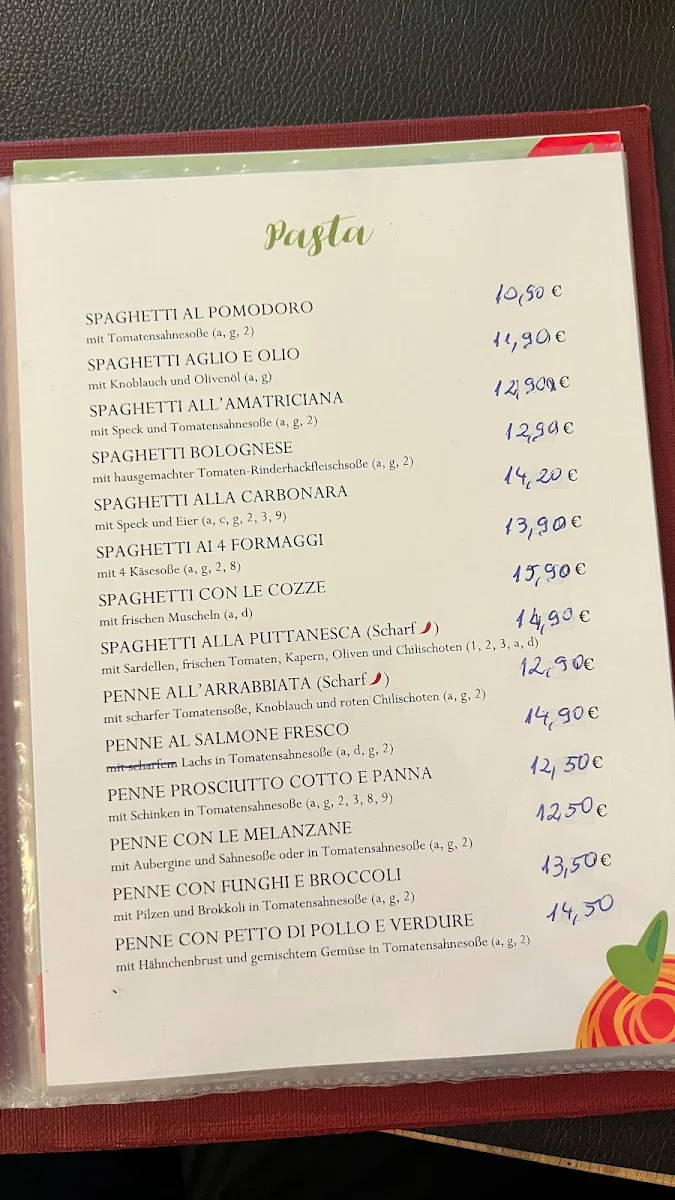 Pasta
SPAGHETTI AL POMODORO 10,90 €
mit Tomatensahnesoße (a, g, 2)
SPAGHETTI AGLIO E OLIO 11,90 €
mit Knoblauch und Olivenöl (a, g)
SPAGHETTI ALL'AMATRICIANA 12,90 €
mit Speck und Tomatensahnesoße (a, g, 2)
SPAGHETTI BOLOGNESE 12,90 €
mit hausgemachter Tomaten-Rinderhackfleischsoße (a, g, 2)
SPAGHETTI ALLA CARBONARA 14,20 €
mit Speck und Eier (a, c, g, 2, 3, 9)
SPAGHETTI AI 4 FORMAGGI 13,90 €
mit 4 Käsesoße (a, g, 2, 8)
SPAGHETTI CON LE COZZE 15,90 €
mit frischen Muscheln (a, d)
SPAGHETTI ALLA PUTTANESCA (Scharf🌶) 14,90 €
mit Sardellen, frischen Tomaten, Kapern, Oliven und Chilischoten (1, 2, 3, a, d)
PENNE ALL'ARRABBIATA (Scharf🌶) 12,90 €
mit scharfer Tomatensoße, Knoblauch und roten Chilischoten (a, g, 2)
PENNE AL SALMONE FRESCO 14,90 €
mit scharfem Lachs in Tomatensahnesoße (a, d, g, 2)
PENNE PROSCIUTTO COTTO E PANNA 12,50 €
mit Schinken in Tomatensahnesoße (a, g, 2, 3, 8, 9)
PENNE CON LE MELANZANE 12,50 €
mit Aubergine und Sahnesoße oder in Tomatensahnesoße (a, g, 2)
PENNE CON FUNGHI E BROCCOLI 13,50 €
mit Pilzen und Brokkoli in Tomatensahnesoße (a, g, 2)
PENNE CON PETTO DI POLLO E VERDURE 14,50
mit Hähnchenbrust und gemischtem Gemüse in Tomatensahnesoße (a, g, 2)